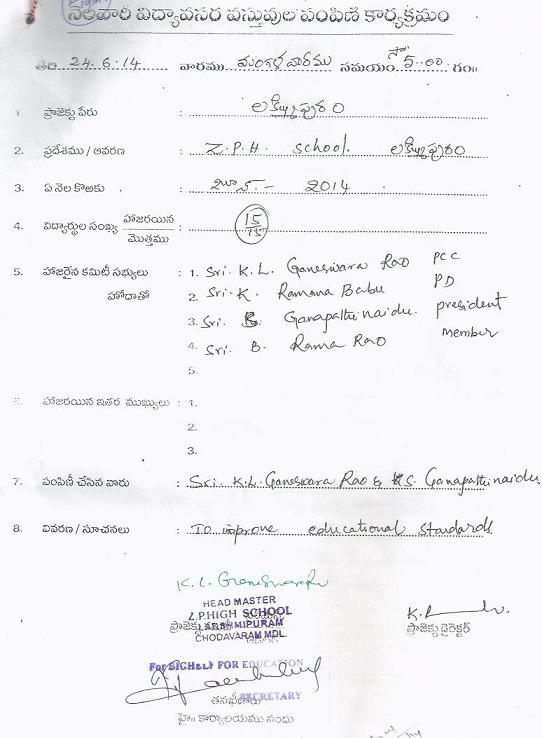 నెలవారీ విద్యావసర వస్తువుల పంపిణి కార్యక్రమం
తేది 24.6.14 వారము మంగళవారము సమయం సా 5.00 గం॥
1 ప్రాజెక్టు పేరు : లక్ష్మీపురం
2. ప్రదేశము / ఆవరణ : Z.P.H school. లక్ష్మీపురం
3. ఏ నెల కొఱకు : జూన్ - 2014
4. విద్యార్థుల సంఖ్య హాజరయిన / మొత్తము : 15/15
5. హాజరైన కమిటీ సభ్యులు : 1. Sri. K. L. Ganeswara Rao PCC
హోదాతో 2. Sri. K. Ramana Babu PD
3. Sri. S. Ganapathinaidu. president
4. Sri. B. Rama Rao member
5.
6. హాజరయిన ఇతర ముఖ్యులు : 1.
2.
3.
7. పంపిణీ చేసిన వారు : Sri. K.L. Ganeswara Rao & S. Ganapathinaidu
8. వివరణ / సూచనలు : To improve educational standards
K. L. Ganeswara
HEAD MASTER
Z.P.HIGH SCHOOL
LAKSHMIPURAM
CHODAVARAM MDL.
ప్రాజెక్టు డైరెక్టర్
For BIGHELP FOR EDUCATION
SECRETARY
తనఖీదారు
హై॥ కార్యాలయము నందు